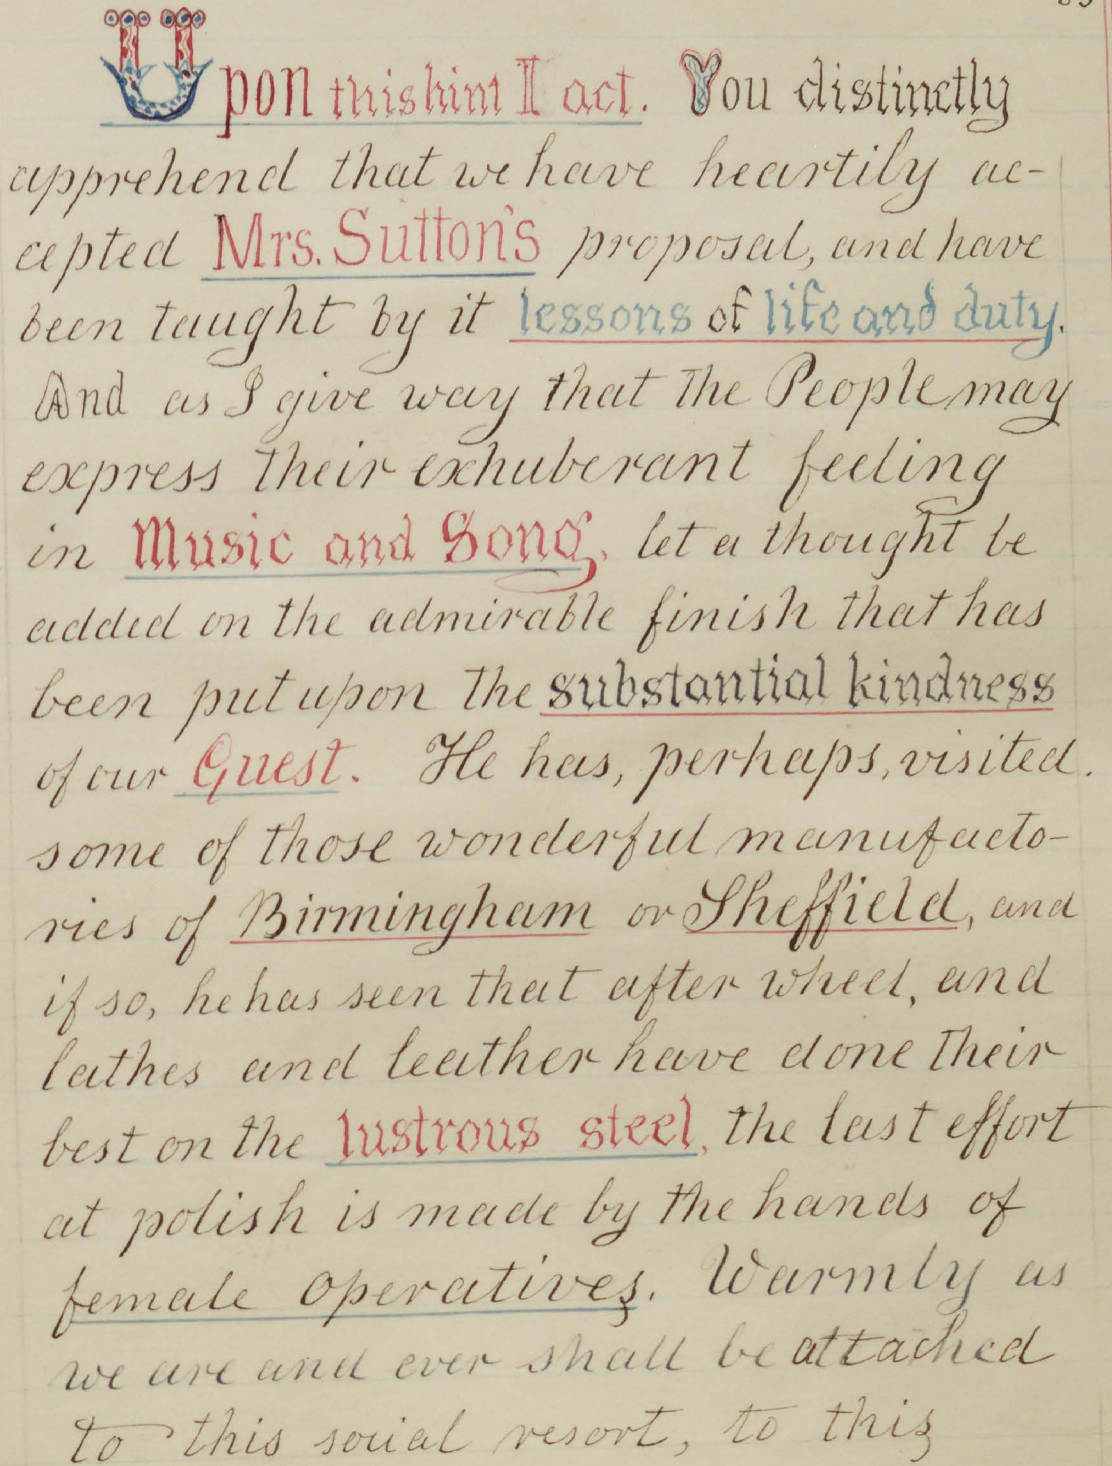 Upon this hint I act. You distinctly
apprehend that we have heartily ac-
cepted Mrs. Sutton's proposal, and have
been taught by it lessons of life and duty.
And as I give way that the People may
express their exhuberant feeling
in Music and Song, let a thought be
added on the admirable finish that has
been put upon the substantial kindness
of our Guest. He has, perhaps, visited.
some of those wonderful manufacto-
ries of Birmingham or Sheffield, and
if so, he has seen that after wheel, and
lathes and leather have done their
best on the lustrous steel, the last effort
at polish is made by the hands of
female operatives. Warmly as
we are and ever shall be attached
to this social resort, to this